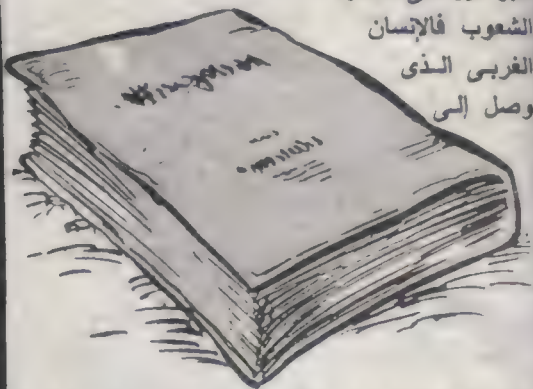 الشعوب فالإنسان
الغربى الذى
وصل إلى